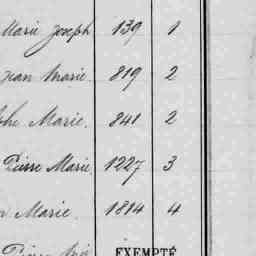 Marie Joseph 139 1
Jean Marie 819 2
Marie. 841 2
Pierre Marie 1227 3
Marie. 1814 4
EXEMPTÉ